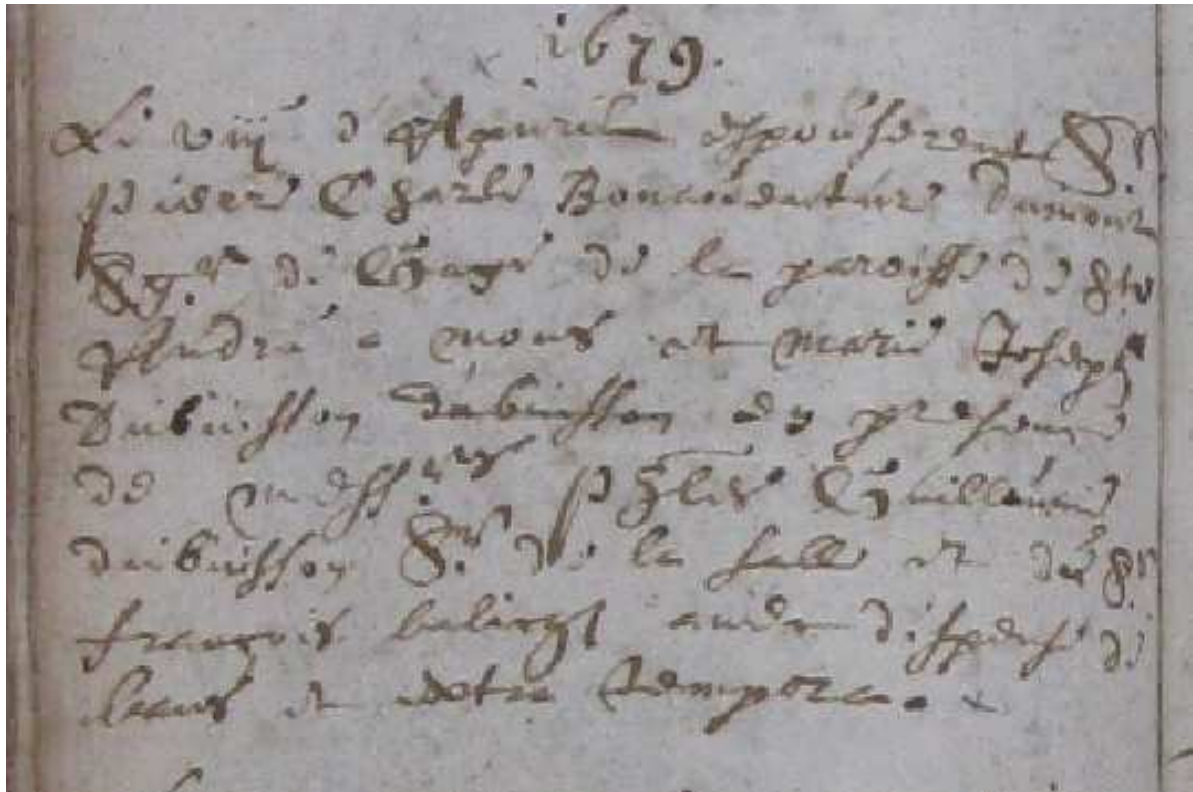 1679.
Le viij d'Apuril espouserent Sr
Pier Charle Bonnauenture Dumont
Sgr. de Gage de la paroisse de Ste
Andre a mons et marie Joseph
Dubuisson dubuisson en presence
de mess.rs Guilleaume
dubuisson Sr. de la salle et du Sr
francois dispense de
banns et tempore.